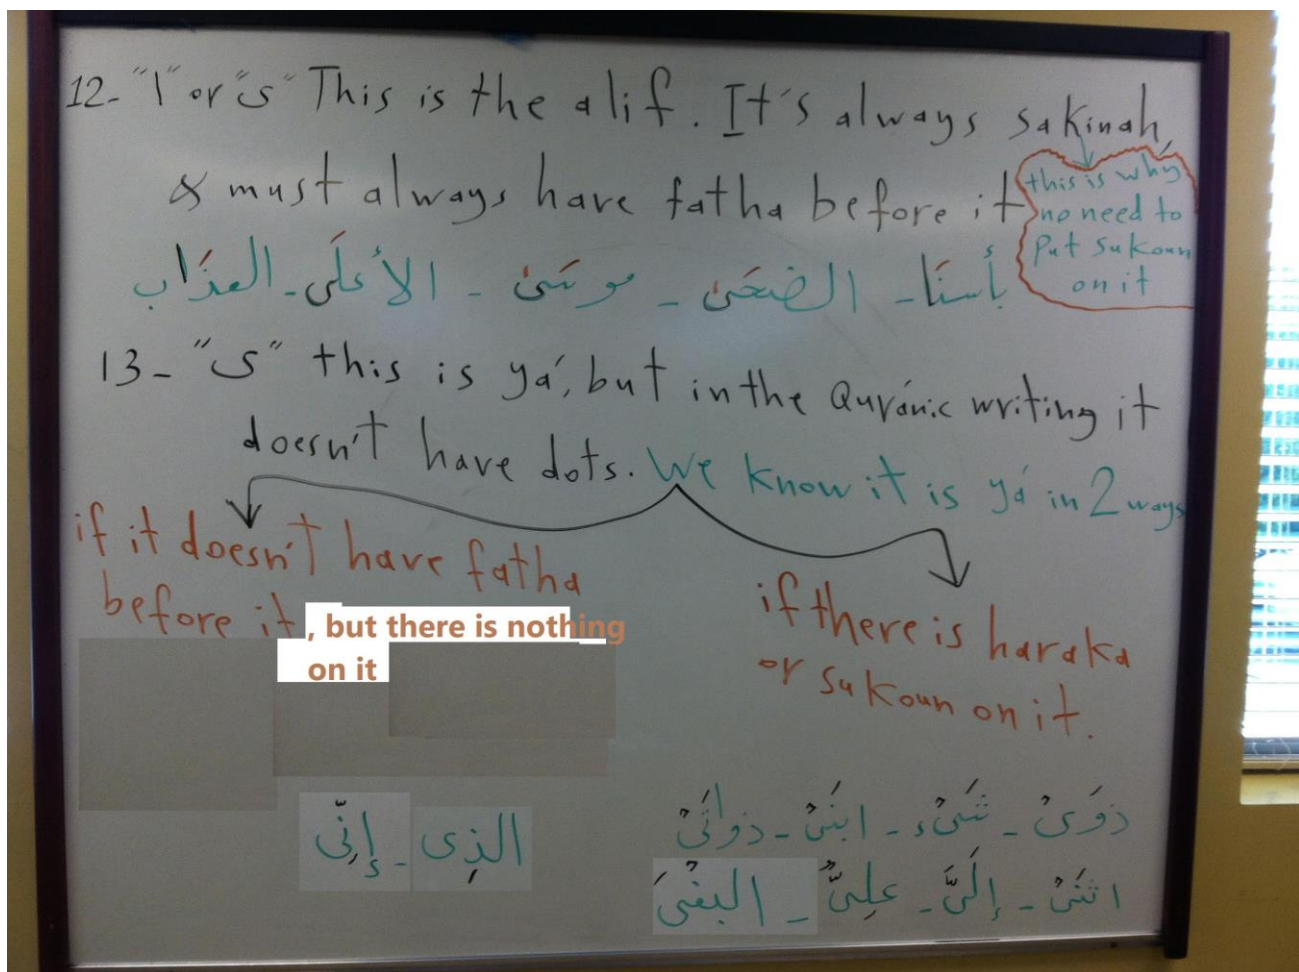 12- "ا" or "ى" This is the alif. It's always sakinah,
& must always have fatha before it
this is why
no need to
put sukoun
on it
بأسنَا - الضحَىٰ - موسَىٰ - الأعلَى - العذَاب
13- "ى" this is yá, but in the Qur'ánic writing it
doesn't have dots. We know it is yá in 2 ways
if it doesn't have fatha
before it, but there is nothing
on it
الذِى - إِنِّى
if there is haraka
or sukoun on it.
ذوَىْ - شَىْء - ابنَىْ - ذواتَىْ
اثنَىْ - إلَىَّ - علِىٌّ - البغْىَ